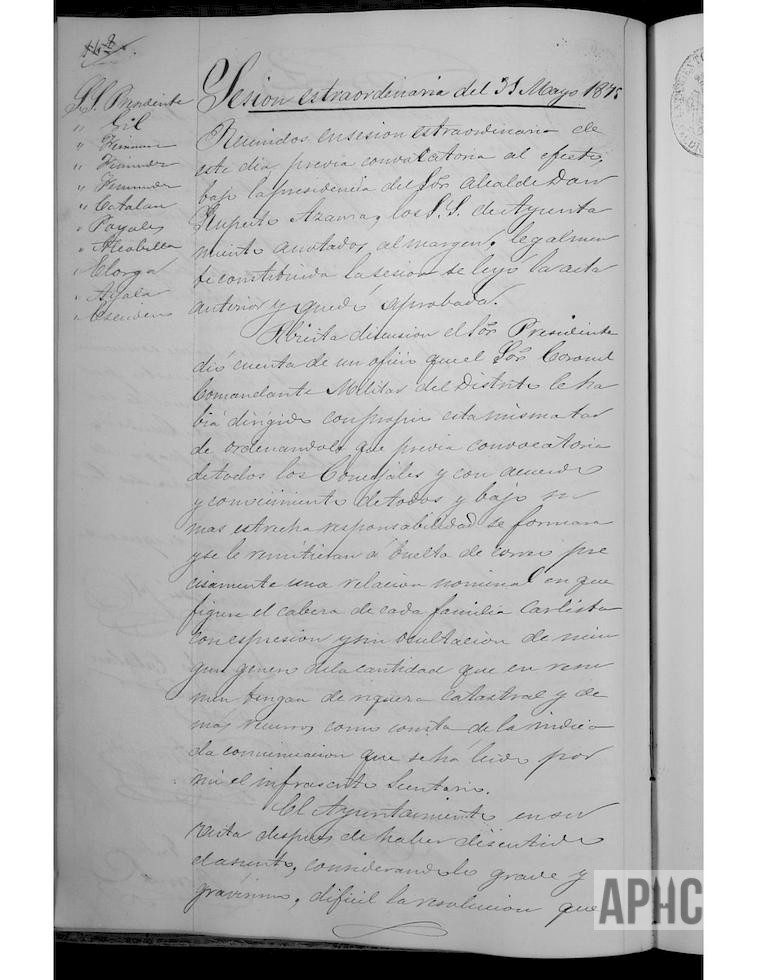 S.S. Presidente
" Gil
" Ximenez
" Ximenez
" Ximenez
" Catalan
" Payales
" Alcobilla
" Elorga
" Ayala
" Escudero
Sesion estraordinaria del 31 Mayo 1875
Reunidos en sesion estraordinaria de
este dia previa convocatoria al efecto,
bajo la presidencia del Sor. Alcalde Don
Ruperto Azama, los S.S. de Ayunta
miento anotados al margen, legalmen
te constituida la sesion se leyó la acta
anterior y quedó aprobada.
Abierta discusion el Sor. Presidente
dió cuenta de un oficio que el Sor. Coronel
Comandante Militar del Distrito le ha
bia dirigido con propio esta misma tar
de ordenandole que previa convocatoria
de todos los Concejales y con acuerdo
y conocimiento de todos y bajo su
mas estrecha responsabilidad se formara
y se le remitieran á buelta de correo pre
cisamente una relacion nominal en que
figure el cabeza de cada familia Carlista
con espresion y sin ocultacion de nin
gun genero de la cantidad que en resu
men tengan de riqueza catastral y de
mas recursos como consta de la indica
da comunicacion que se há leido por
mi el infrascrito Secretario.
El Ayuntamiento en su
vista despues de haber discutido
el asunto, considerandolo grave y
gravisimo, dificil la resolucion que
APHC